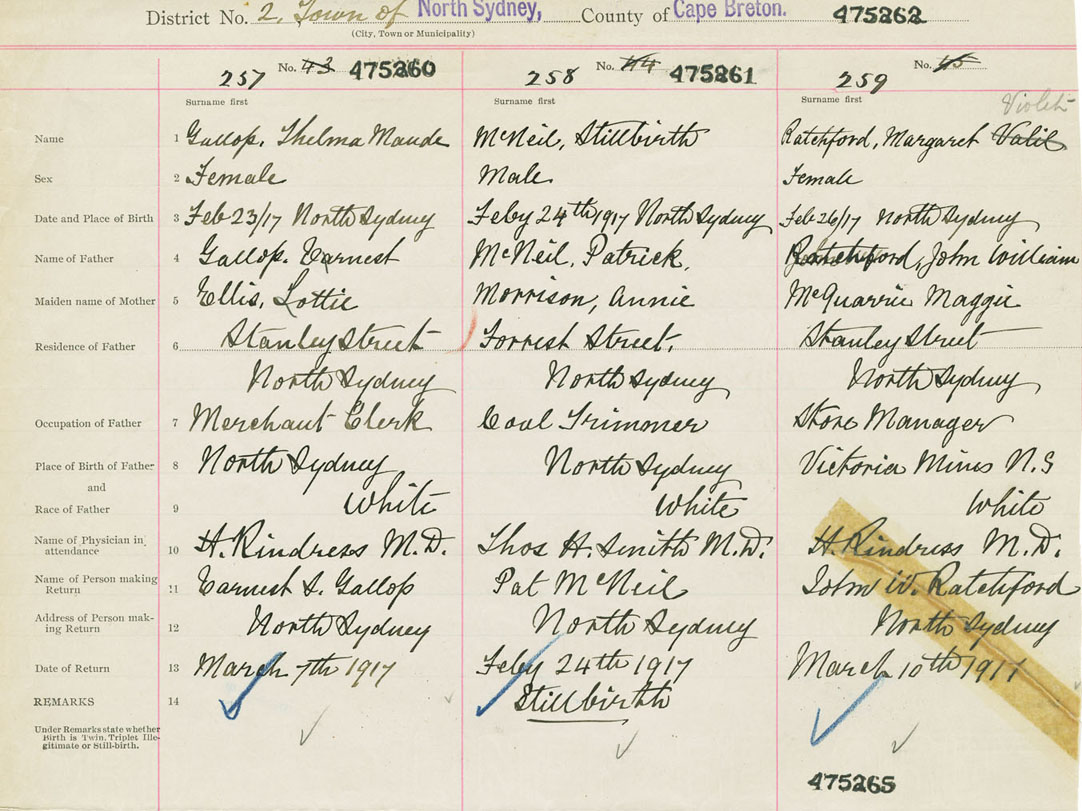 District No. 2, Town of North Sydney, County of Cape Breton. 475262
(City, Town or Municipality)
257 No. 43 475260 258 No. 44 475261 259 No. 45
Surname first Surname first Surname first Violet
Name 1 Gallop, Thelma Maude McNeil, Stillbirth Ratchford, Margaret
Sex 2 Female Male Female
Date and Place of Birth 3 Feb 23/17 North Sydney Feby 24th 1917 North Sydney Feb 26/17 North Sydney
Name of Father 4 Gallop. Earnest McNeil, Patrick. Ratchford, John William
Maiden name of Mother 5 Ellis, Lottie Morrison, Annie McQuarrie Maggie
Residence of Father 6 Stanley Street Forrest Street, Stanley Street
North Sydney North Sydney North Sydney
Occupation of Father 7 Merchant Clerk Coal Trimmer Store Manager
Place of Birth of Father 8 North Sydney North Sydney Victoria Mines N.S
and
Race of Father 9 White White White
Name of Physician in attendance 10 H. Kindress M.D. Thos H. Smith M.D. H. Kindress M.D.
Name of Person making Return 11 Earnest S. Gallop Pat McNeil John W. Ratchford
Address of Person mak-
ing Return 12 North Sydney North Sydney North Sydney
Date of Return 13 March 7th 1917 Feby 24th 1917 March 10th 1917
REMARKS 14 Stillbirth
Under Remarks state whether
Birth is Twin, Triplet Ille-
gitimate or Still-birth.
475265